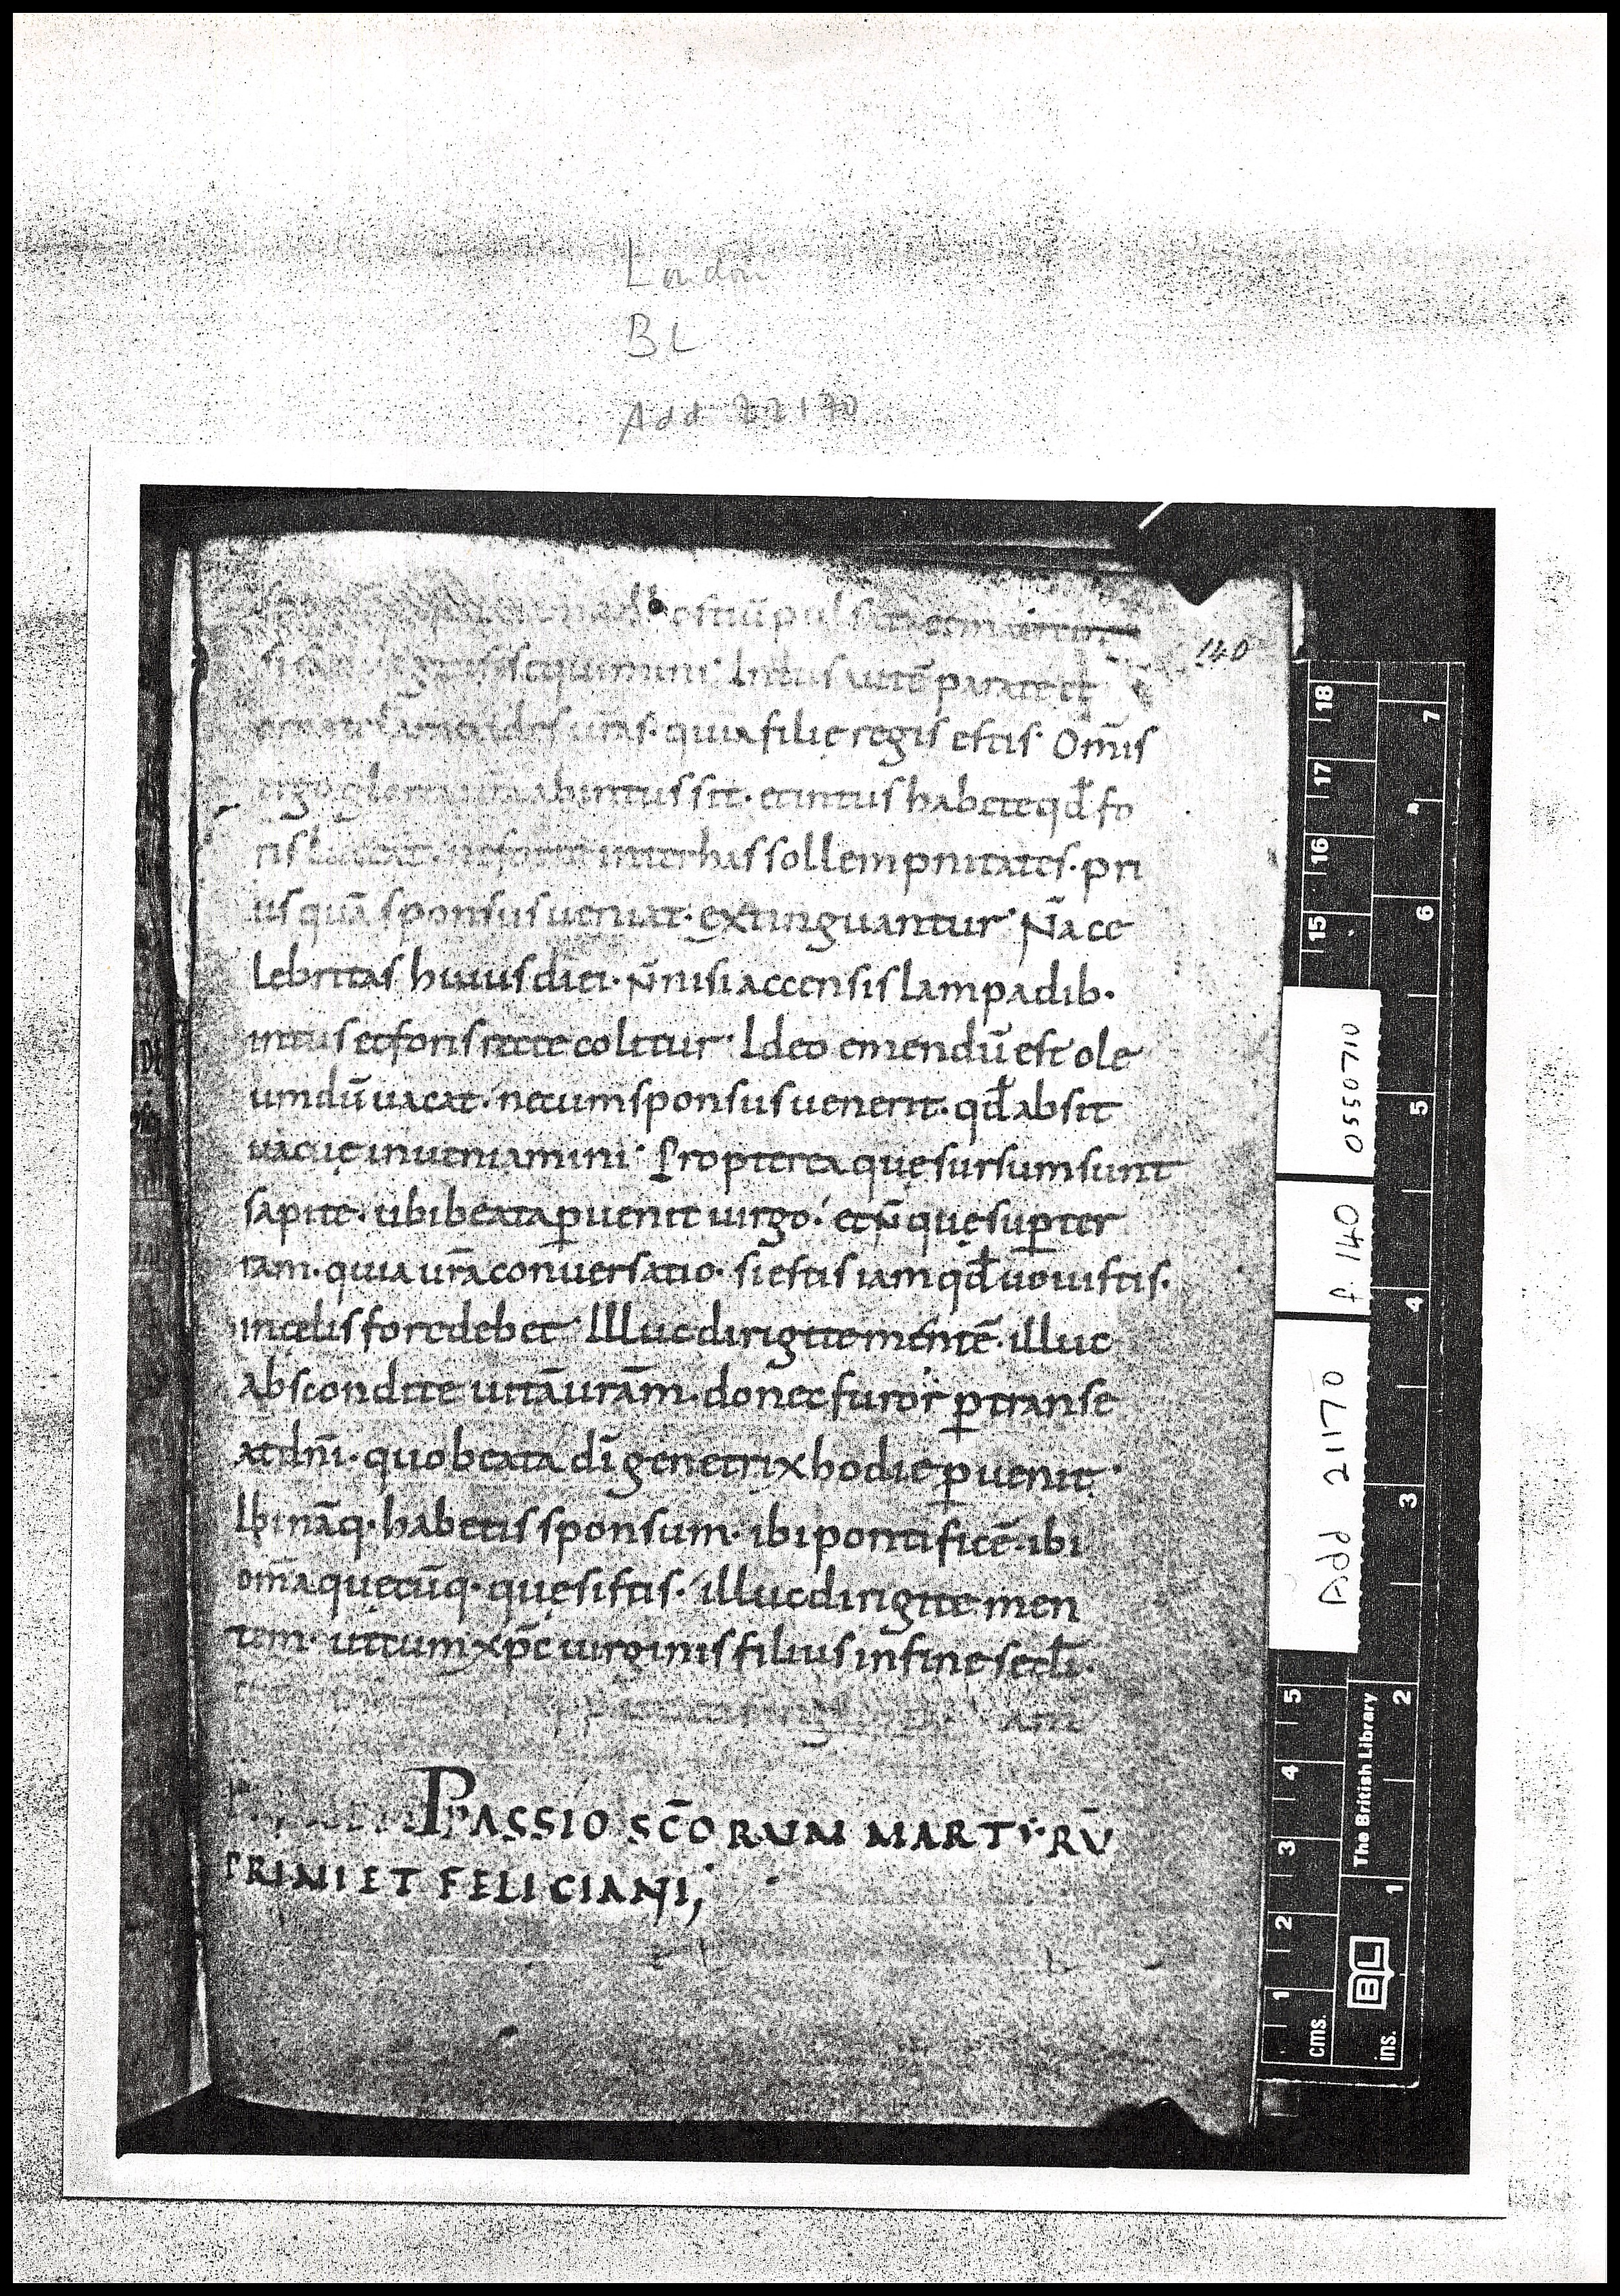 London
BL
Add 22170
140
ad hostiū pulsat
sequimini· Intus aute parate et
urās· quia filię regis estis· Om̄is
ergo gloria urā abintus sit· et intus habete qđ fo
ris luceat· ne forte inter has sollempnitates· pri
us quā sponsus ueniat· extinguantur· N̄a ce
lebritas huius diei· n̄ nisi accensis lampadib·
intus et foris recte colitur· Ideo emendū est ole
um dū uacat· ne cum sponsus uenerit· qđ absit
uacuę inueniamini· Propterea quę sursum sunt
sapite· ubi beata ꝑuenit uirgo· et n̄ quę sup̄ ter
ram· quia urā conuersatio· si estis iam qđ uouistis·
in cęlis fore debet· Illuc dirigite mentē· illuc
abscondite uitā urām· donec furor ꝑtranse
at dn̄i· quo beata dī genetrix hodie ꝑuenit·
Ibi nāq· habetis sponsum· ibi pontificē· ibi
om̄a quęcūq· quęsistis· illuc dirigite men
tem· uti cum xp̄c uirginis filius in fine secłi·
PASSIO SC̄ORUM MARTYRŪ
PRIMI ET FELICIANI,
Add 21170
f 140
0550710
18
17
16
15
5
4
3
2
1
cms.
7
6
5
4
3
2
1
ins.
The British Library
BL